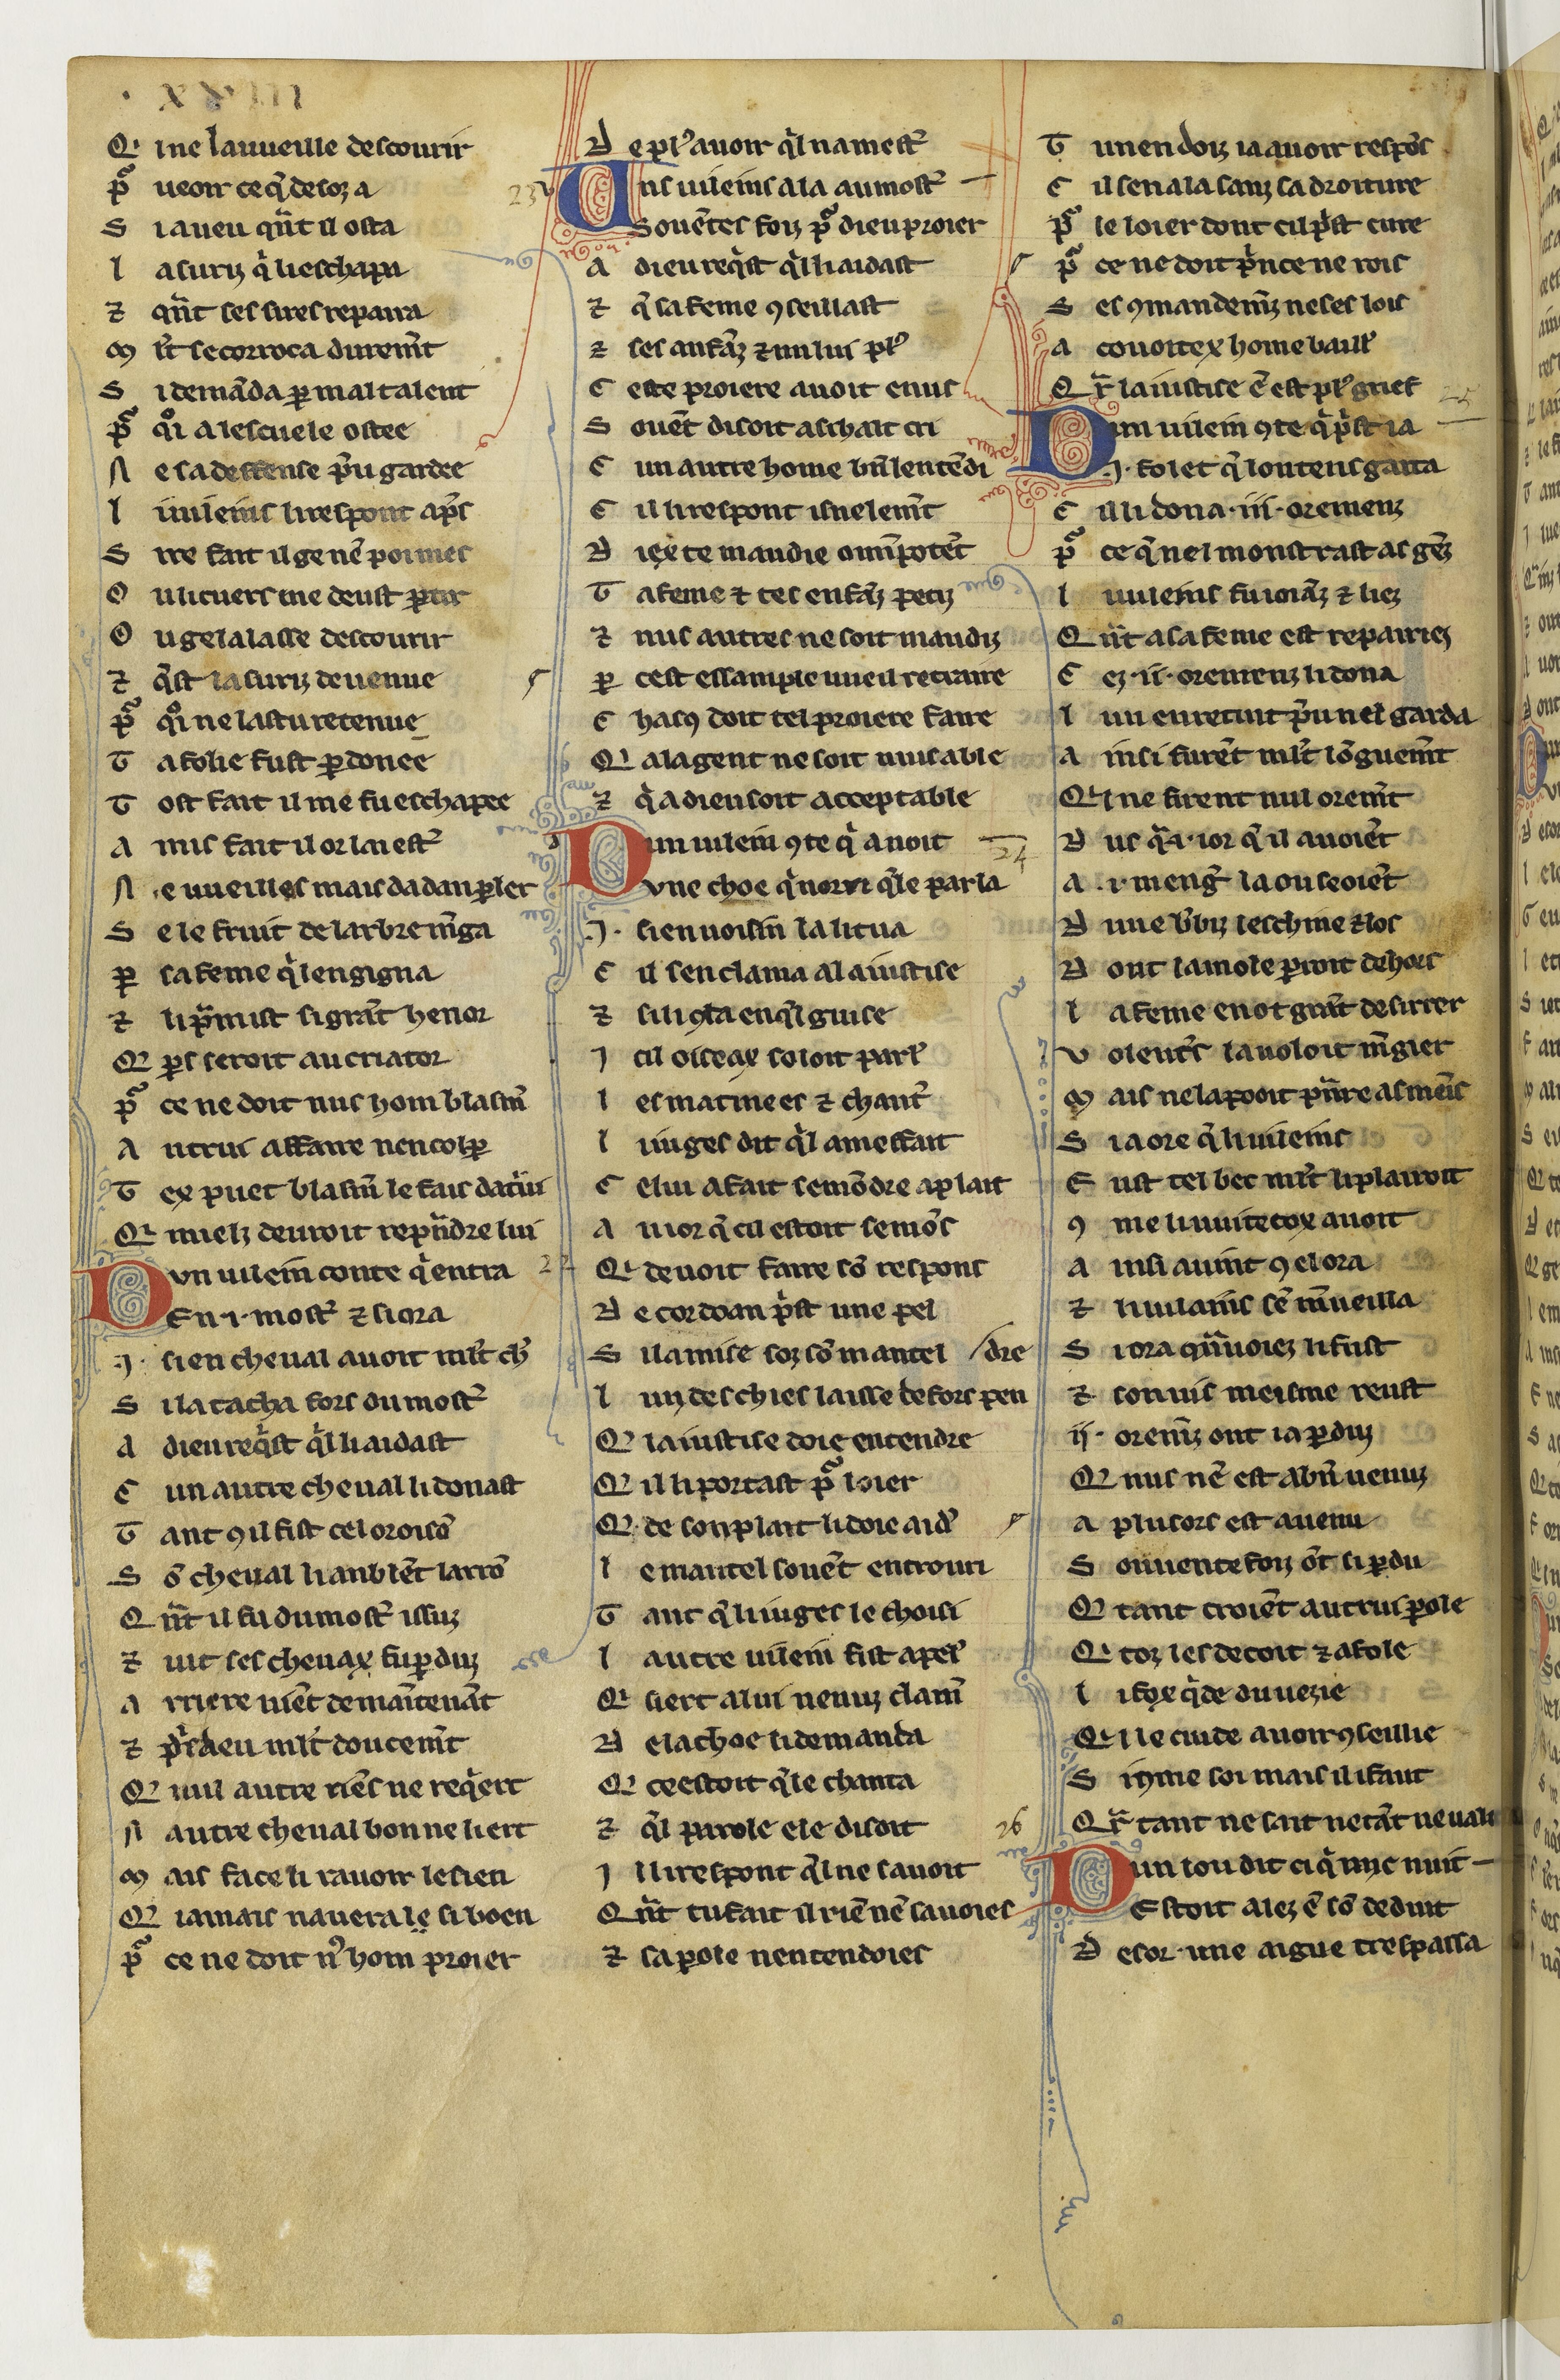 . XXIIII
Q ine lauueille descourir
p̃ ueoir ce q̃ desoz a
S i a ueu qñt il osta
l a suriz q̃ li eschapa
⁊ qñt ses sires repaira
M lt̃ se corroca durem̃t
S i demãda ꝑ maltalent
p̃ qͦi a lescuele ostee
N e sa deffense p̃u gardee
l i uileins li respont ap̃s
S ire fait il ge nẽ poi mes
O u li cuers me deust ꝑtir
O u ge la lasse descourir
⁊ q̃st la suriz deuenue
p̃ qͦi ne las tu retenue
T a folie fust ꝑdonee
T ost fait il me fu eschapee
A mis fait il or lai est̃
N e uueilles mais dadan ꝑler
S e le fruit de larbre mẽga
ꝑ sa feme q̃ lengigna
⁊ li ꝓmist si grãt henor
Q ꝑs seroit au criator
p̃ ce ne doit nus hom blasm̃
A utrui affaire nencolꝑ
T ex puet blasm̃ le fais dat̃ui
Q mielz deuroit repñdre lui
D vn uilein conte q̃ entra
En .i. most̃ ⁊ si ora
.J. sien cheual auoit mlt̃ ch̃
S i latacha fors du most̃
A dieu req̃st q̃l li aidast
C un autre cheual li donast
T ant ꝯ il fist cel oroisõ
S õ cheual li anblẽt larrõ
Q ñt il fu du most̃ issuz
⁊ uit ses cheuax fu ꝑduz
A rriere uiẽt demãtenãt
⁊ p̃r dieu mlt̃ doucem̃t
Q nul autre riẽs ne req̃ert
N autre cheual bon ne li ert
M ais face li rauoir le sien
Q iamais nauera le si boen
p̃ ce ne doit nꝰ hom proier
D e plꝰ auoir q̃l na mest̃
23
U ns uileins ala au most̃
Souẽtes foiz p̃ dieu proier
A dieu req̃st q̃l li aidast
⁊ q̃ sa feme ꝯseillast
⁊ ses anfãz ⁊ nului plꝰ
C este proiere auoit en us
S ouẽt disoit a si hait cri
C un autre home bñ lentẽdi
C il li respont isnelem̃t
D iex te maudie omp̃otẽt
T a feme ⁊ tes enfãz petiz
⁊ nus autres ne soit maudiz
ꝑ cest essample uueil retraire
C hacꝯ doit tel proiere faire
Q a la gent ne soit nuisable
⁊ q̃ a dieu soit acceptable
D un uilein ꝯte q̃ auoit
24
vne choe q̃ norri q̃le parla
.J. sien uoisin la li tua
C il sen clama a la iustise
⁊ si li ꝯta en q̃l guise
J cil oiseax soloit parl̃
l es matinees ⁊ chant̃
l i iuges dit q̃l a mesfait
C elui a fait semõdre a plait
A u ior q̃ cil estoit semõs
Q deuoit faire sõ respons
D e cordoan p̃st une pel
S i la mise soz sõ mantel
l un des chies laisse defors pen
/dre
Q la iustise doie entendre
Q il li portast p̃ loier
Q de son plait li doie aid̃
l e mantel souẽt entrouri
T ant q̃ li iuges le choisi
l autre uilein fist apel̃
Q siert a lui uenuz clam̃
D e la choe li demanda
Q ce estoit q̃le chanta
⁊ q̃l parole ele disoit
J l li respont q̃l ne sauoit
Q ñt tu fait il riẽ nẽ sauoies
⁊ sa ꝑole nentendoies
T u nen doiz ia auoir respõs
C il sen ala sanz sa droiture
p̃ le loier dont cil p̃st cure
p̃ ce ne doit p̃nce ne rois
S es ꝯmandem̃z ne ses lois
A couoitex home baill̃
Q r̃ la iustise ẽ est plꝰ grief
25
D un uilein ꝯte q̃ p̃st ia
.J. folet q̃ lontens gaita
C il li dona .iii. oremenz
p̃ ce q̃ nel monstrast as gẽz
l i uileins fu ioiãz ⁊ liez
Q ñt a sa feme est repairiez
C ez .ii. oremenz li dona
l un en retint p̃u nel garda
A insi furẽt mlt̃ lõguem̃t
Q l ne firent nul orem̃t
D us q̃ .i. ior q̃ il auoiẽt
A .i. meng̃ la ou seoiẽt
D une b̃biz leschine ⁊ los
D ont la mole paroit dehors
l a feme en ot grãt desirrer
V olent̃s la uoloit mẽgier
M ais ne la pooit p̃nre as meĩs
S i a ore q̃ li uileins
E ust tel bec mlt̃ li plairoit
ꝯ me li uuitecox auoit
A insi auint ꝯ el ora
⁊ li uilains sẽ m̃ueilla
S i ora q̃ uoiez li fust
⁊ son uis meisme reust
ii. orem̃z ont ia ꝑduz
Q nus nẽ est a bñ uenuz
A plusors est auenu
S ouuente foiz õt si ꝑdu
Q tant croiẽt autrui ꝑole
Q toz les decoit ⁊ afole
l i fox q̃ de du uezie
Q l le cuide auoir ꝯseillie
S i ꝯme soi mais il i faut
26
Q r̃ tant ne sait ne tãt ne uaut
D un lou dit ci q̃ mie nuit
Estoit alez ẽ sõ deduit
D esor une aigue trespassa